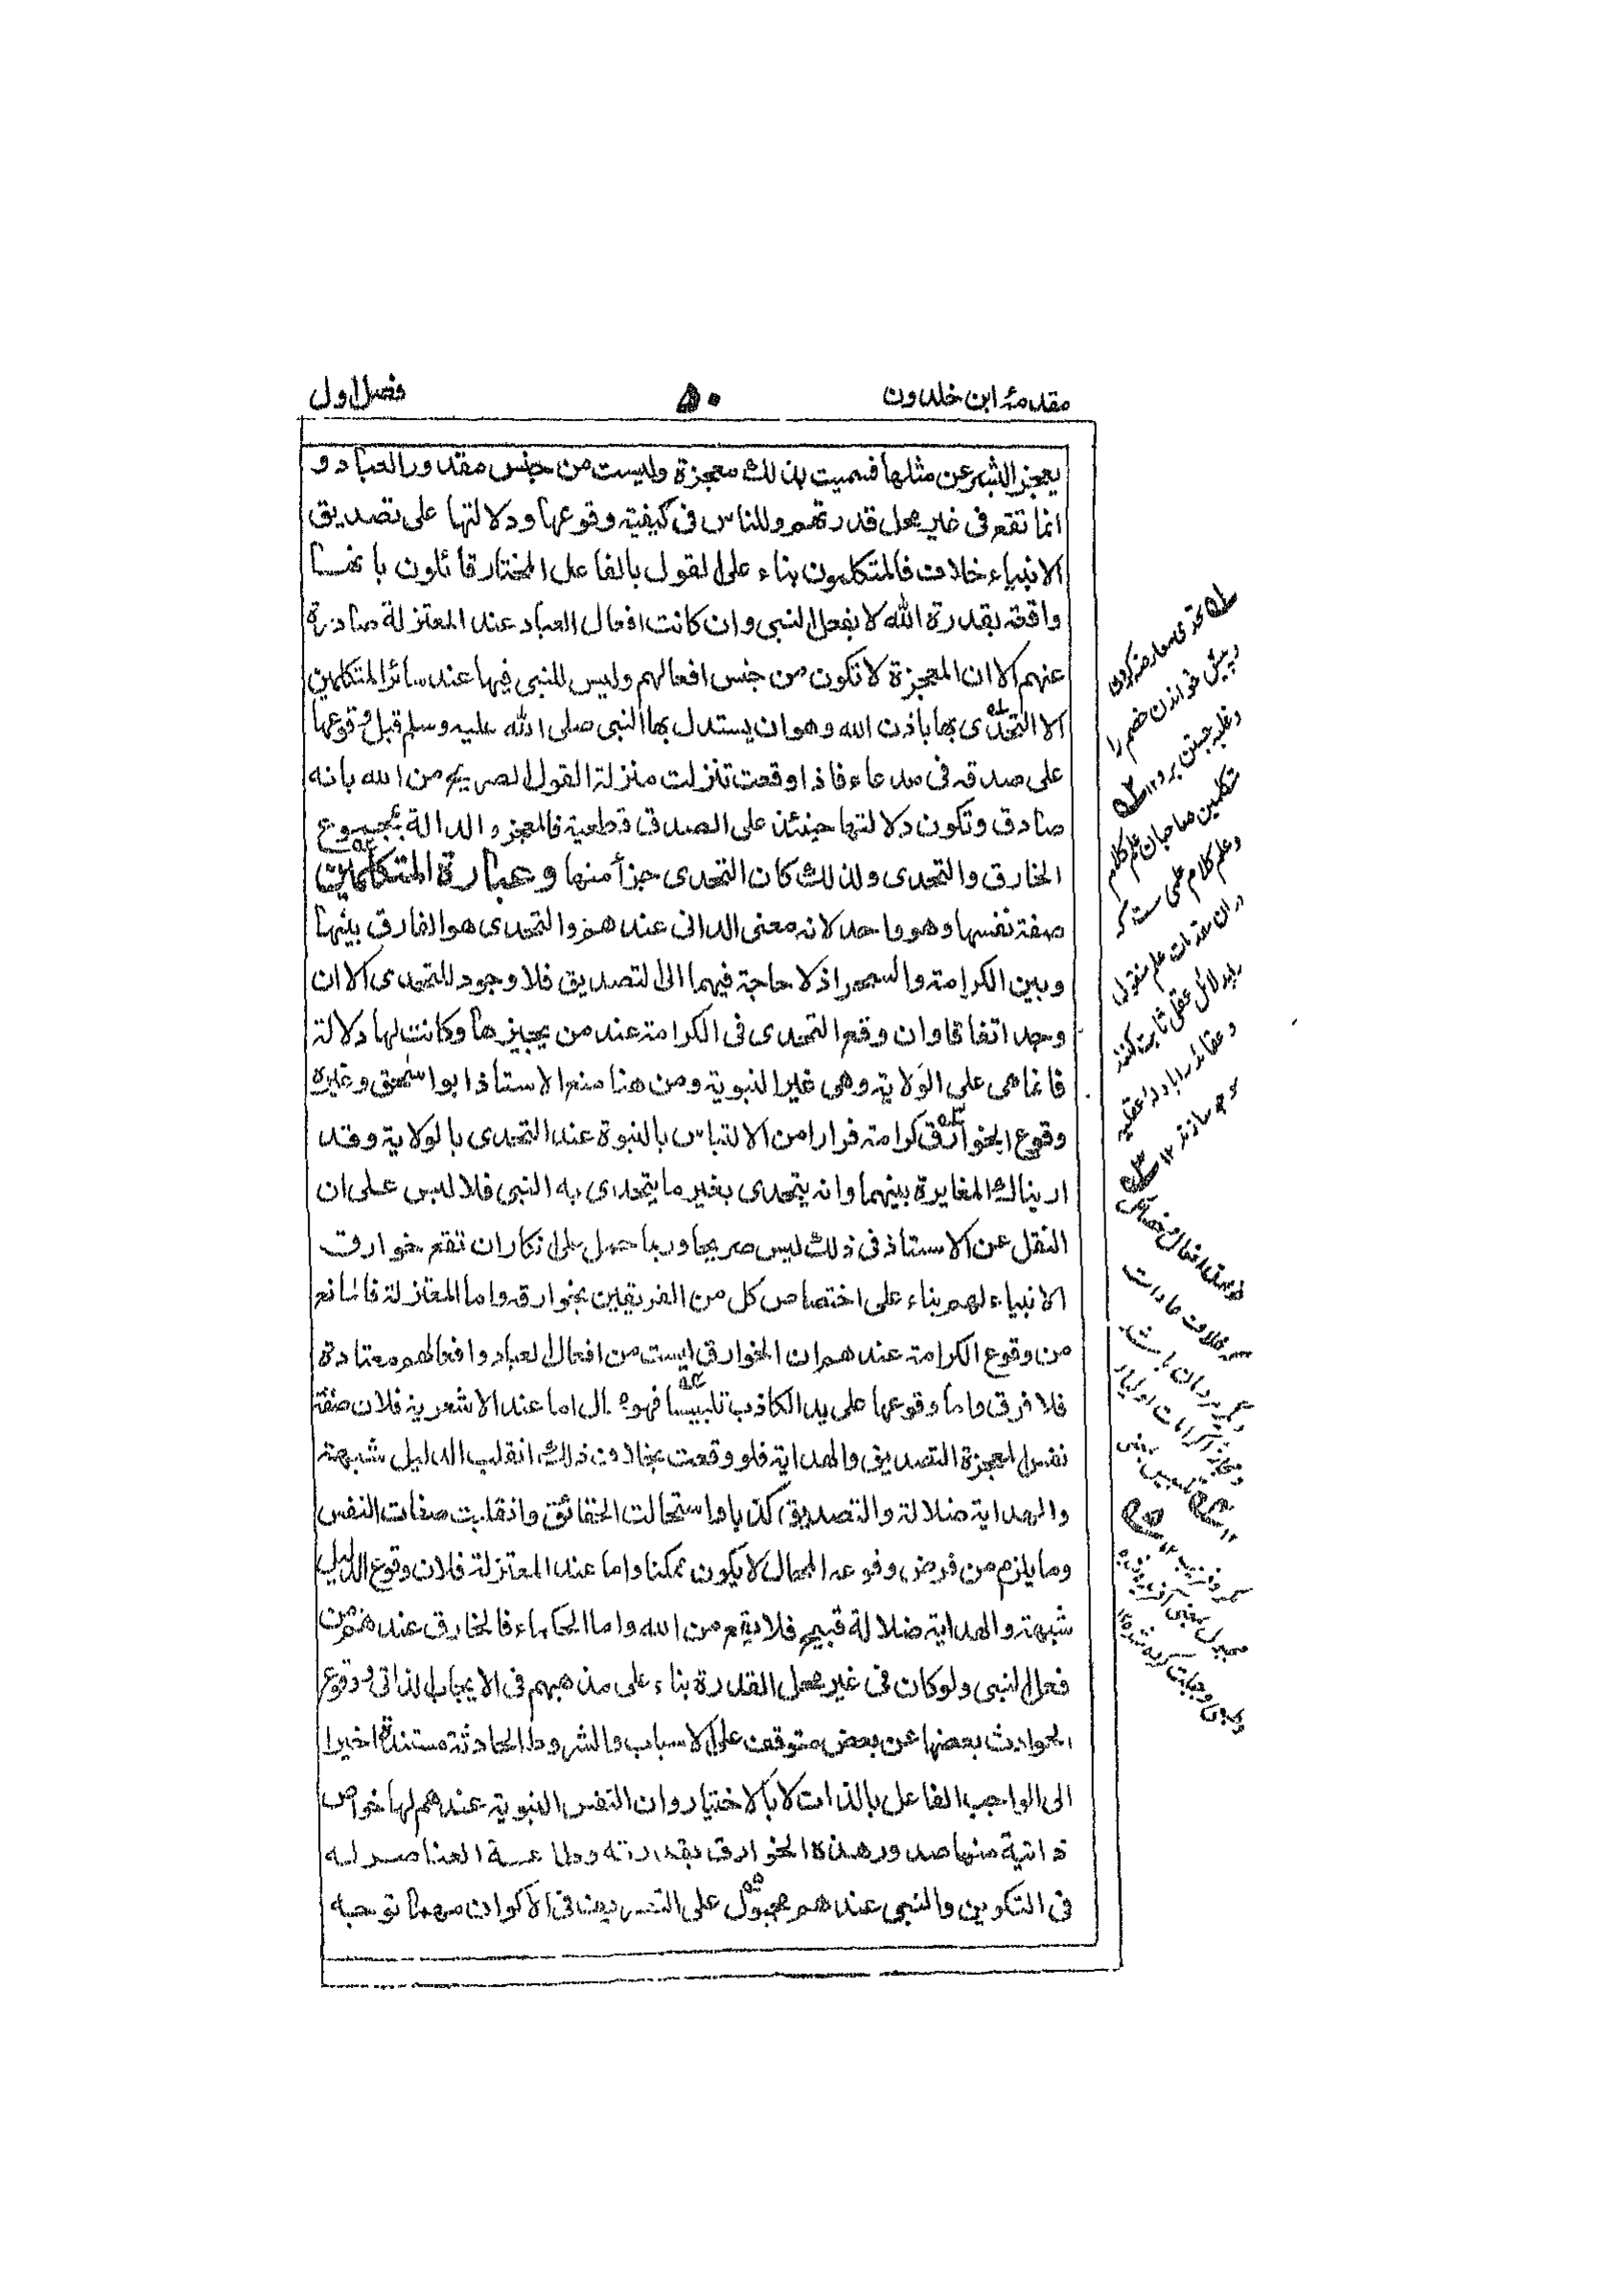 مقدمۂ ابن خلدون
۵۰
فصل اول
يعجز البشر عن مثلها فسميت بذلك معجزة وليست من جنس مقدور العباد و
انما تقع فى غير محل قدرتهم وللناس فى كيفية وقوعها ودلالتها على تصديق
الانبياء خلاف فالمتكلمون بناء على القول بالفاعل المختار قائلون بانها
واقعة بقدرة الله لا بفعل النبى وان كانت افعال العباد عند المعتزلة صادرة
عنهم الا ان المعجزة لا تكون من جنس افعالهم وليس للنبى فيها عند سائر المتكلمين
الا التحدى بها باذن الله وهو ان يستدل بها النبى صلى الله عليه وسلم قبل وقوعها
على صدقه فى مدعاه فاذا وقعت تنزلت منزلة القول الصريح من الله بانه
صادق وتكون دلالتها حينئذ على الصدق قطعية فالمعجزة الدالة بمجموع
الخارق والتحدى ولذلك كان التحدى جزأ منها وعبارة المتكلمين
صفة نفسها وهو واحد لانه معنى الذاتى عندهم والتحدى هو الفارق بينها
وبين الكرامة والسحر اذ لا حاجة فيهما الى التصديق فلا وجود للتحدى الا ان
وجد اتفاقا وان وقع التحدى فى الكرامة عند من يجيزها وكانت لها دلالة
فانما هى على الولاية وهى غير النبوية ومن هنا منع الاستاذ ابو اسحق وغيره
وقوع الخوارق كرامة فرارا من الالتباس بالنبوة عند التحدى بالولاية وقد
اريناك المغايرة بينهما وانه يتحدى بغير ما يتحدى به النبى فلا لبس على ان
النقل عن الاستاذ فى ذلك ليس صريحا وربما حمل على انكار ان تقع خوارق
الانبياء لهم بناء على اختصاص كل من الفريقين بخوارقه واما المعتزلة فالمانع
من وقوع الكرامة عندهم ان الخوارق ليست من افعال العباد وافعالهم معتادة
فلا فرق واما وقوعها على يد الكاذب تلبيسا فهو محال اما عند الاشعرية فلان صفة
نفس المعجزة التصديق والهداية فلو وقعت بخلاف ذلك انقلب الدليل شبهة
والهداية ضلالة والتصديق كذبا واستحالت الحقائق وانقلبت صفات النفس
وما يلزم من فرض وقوعه المحال لا يكون ممكنا واما عند المعتزلة فلان وقوع الدليل
شبهة والهداية ضلالة قبيح فلا يقع من الله واما الحكماء فالخارق عندهم من
فعل النبى ولو كان فى غير محل القدرة بناء على مذهبهم فى الايجاب الذاتى ووقوع
الحوادث بعضها عن بعض متوقف على الاسباب والشروط الحادثة مستندة اخيرا
الى الواجب الفاعل بالذات لا بالاختيار وان النفس النبوية عندهم لها خواص
ذاتية منها صدور هذه الخوارق بقدرته وطاعة العناصر له
فى التكوين والنبى عندهم مجبول على التصريف فى الاكوان مهما توجه
له تحدى معارضه كردن
و پيش خواندن خصم را
و غلبه جستن برو ۱۲
متكلمين صاحبان علم كلام
و علم كلام علمى ست كه
در ان مقدمات علم منقولى
را بدلائل عقلى ثابت كنند
و عقائد را با دلۂ عقليه
موجه سازند ۱۲